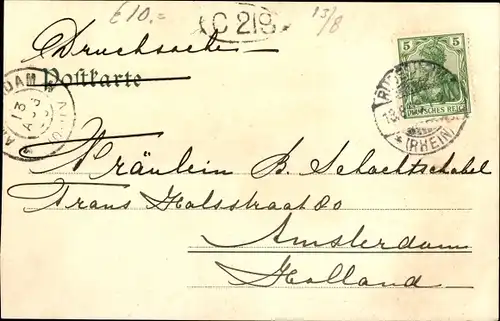 €10.=
C 219
13/8
Drucksache
Postkarte
5 5
DEUTSCHES REICH
(RHEIN)
DAM
13
Fräulein B. Schachtschabel
Frans Halsstraat 80
Amsterdam
Holland